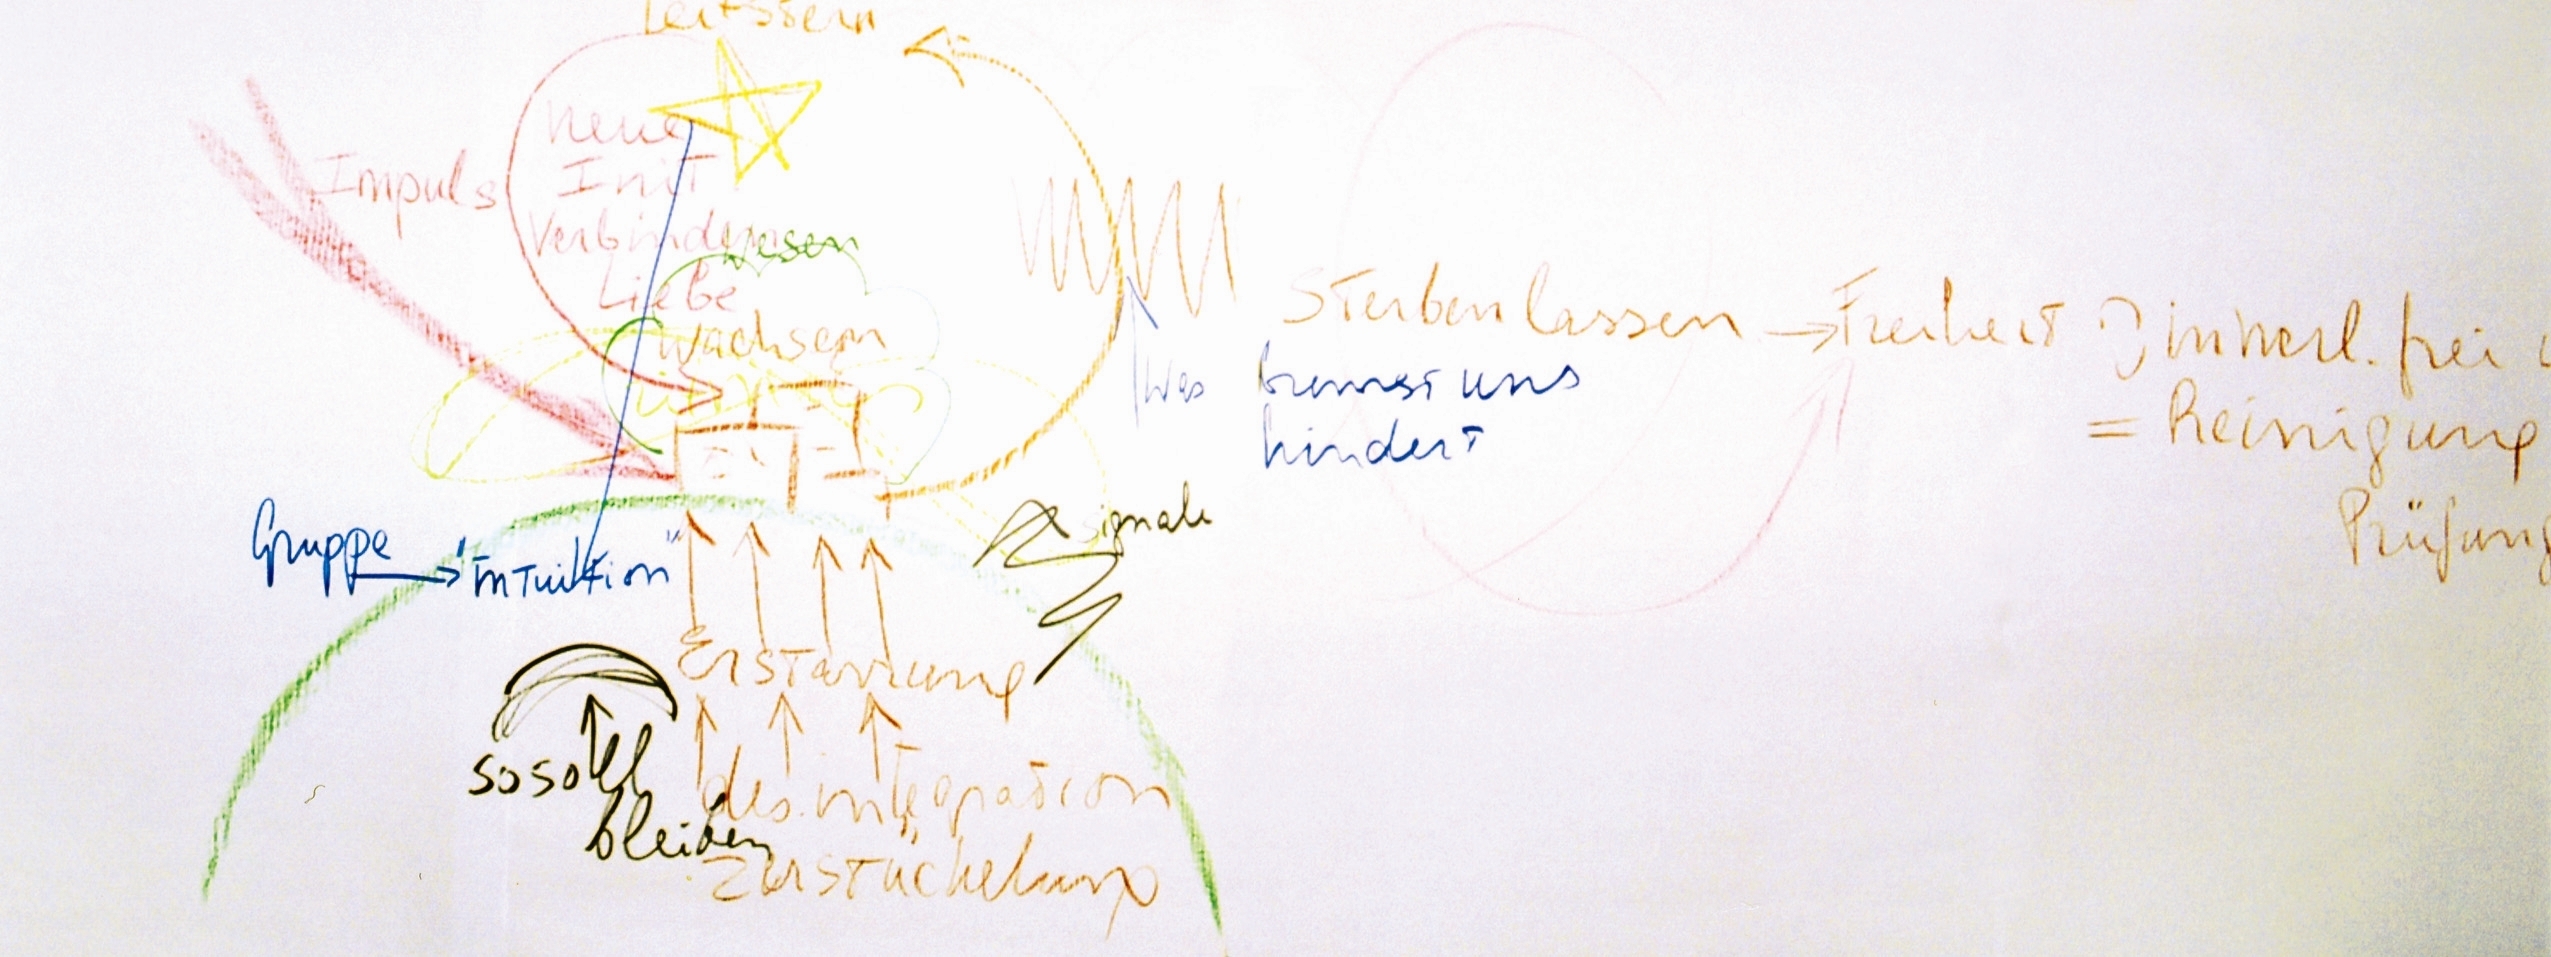 Leitstern
neue
Init
Impuls
Verbinden
Wesen
Liebe
wachsen
Sterben lassen → Freiheit
innerl. frei
= Reinigung
Prüfung
Was bremst uns
hindert
Signale
Gruppe → "Intuition"
Erstarrung
so soll
bleiben
des.integration
Zerstückelung